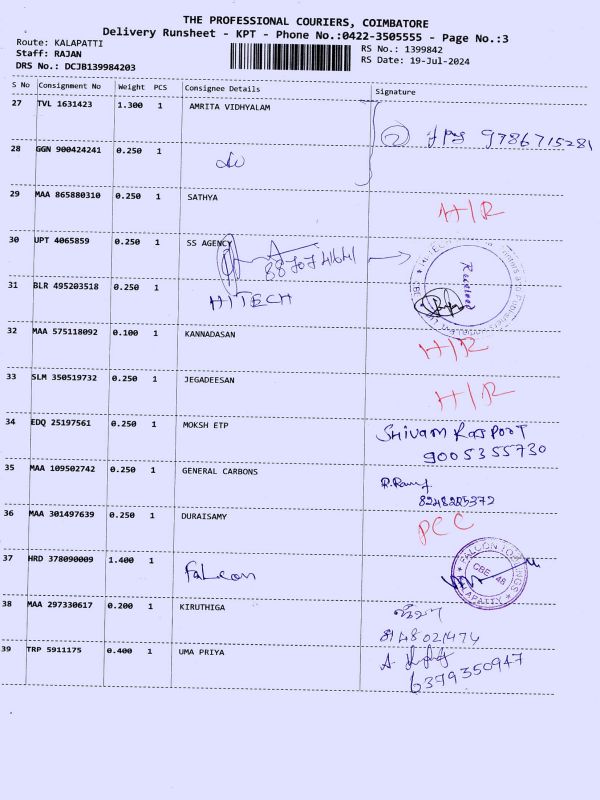 THE PROFESSIONAL COURIERS, COIMBATORE
Delivery Runsheet - KPT - Phone No.:0422-3505555 - Page No.:3
Route: KALAPATTI
Staff: RAJAN
DRS No.: DCJB139984203
RS No.: 1399842
RS Date: 19-Jul-2024
S No Consignment No Weight PCS Consignee Details Signature
27 TVL 1631423 1.300 1 AMRITA VIDHYALAM
2 9786715281
28 GGN 900424241 0.250 1
29 MAA 865880310 0.250 1 SATHYA H/R
30 UPT 4065859 0.250 1 SS AGENCY
Received
31 BLR 495203518 0.250 1 HITECH
32 MAA 575118092 0.100 1 KANNADASAN H/R
33 SLM 350519732 0.250 1 JEGADEESAN H/R
34 EDQ 25197561 0.250 1 MOKSH ETP SHIVAM RASPOOT
9005355730
35 MAA 109502742 0.250 1 GENERAL CARBONS
36 MAA 301497639 0.250 1 DURAISAMY PCC
37 HRD 378090009 1.400 1 Falcon
CBE - 48
38 MAA 297330617 0.200 1 KIRUTHIGA
8148021474
39 TRP 5911175 0.400 1 UMA PRIYA
6379350947